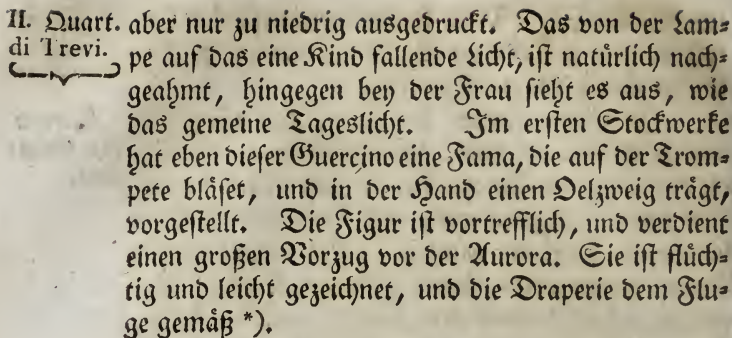 II. Quart. aber nur zu niedrig ausgedruckt. Das von der Lam⸗
di Trevi. pe auf das eine Kind fallende Licht, ist natürlich nach⸗
geahmt, hingegen bey der Frau sieht es aus, wie
das gemeine Tageslicht. Im ersten Stockwerke
hat eben dieser Guercino eine Fama, die auf der Trom⸗
pete bläset, und in der Hand einen Oelzweig trägt,
vorgestellt. Die Figur ist vortrefflich, und verdient
einen großen Vorzug vor der Aurora. Sie ist flüch⸗
tig und leicht gezeichnet, und die Draperie dem Flu⸗
ge gemäß *).